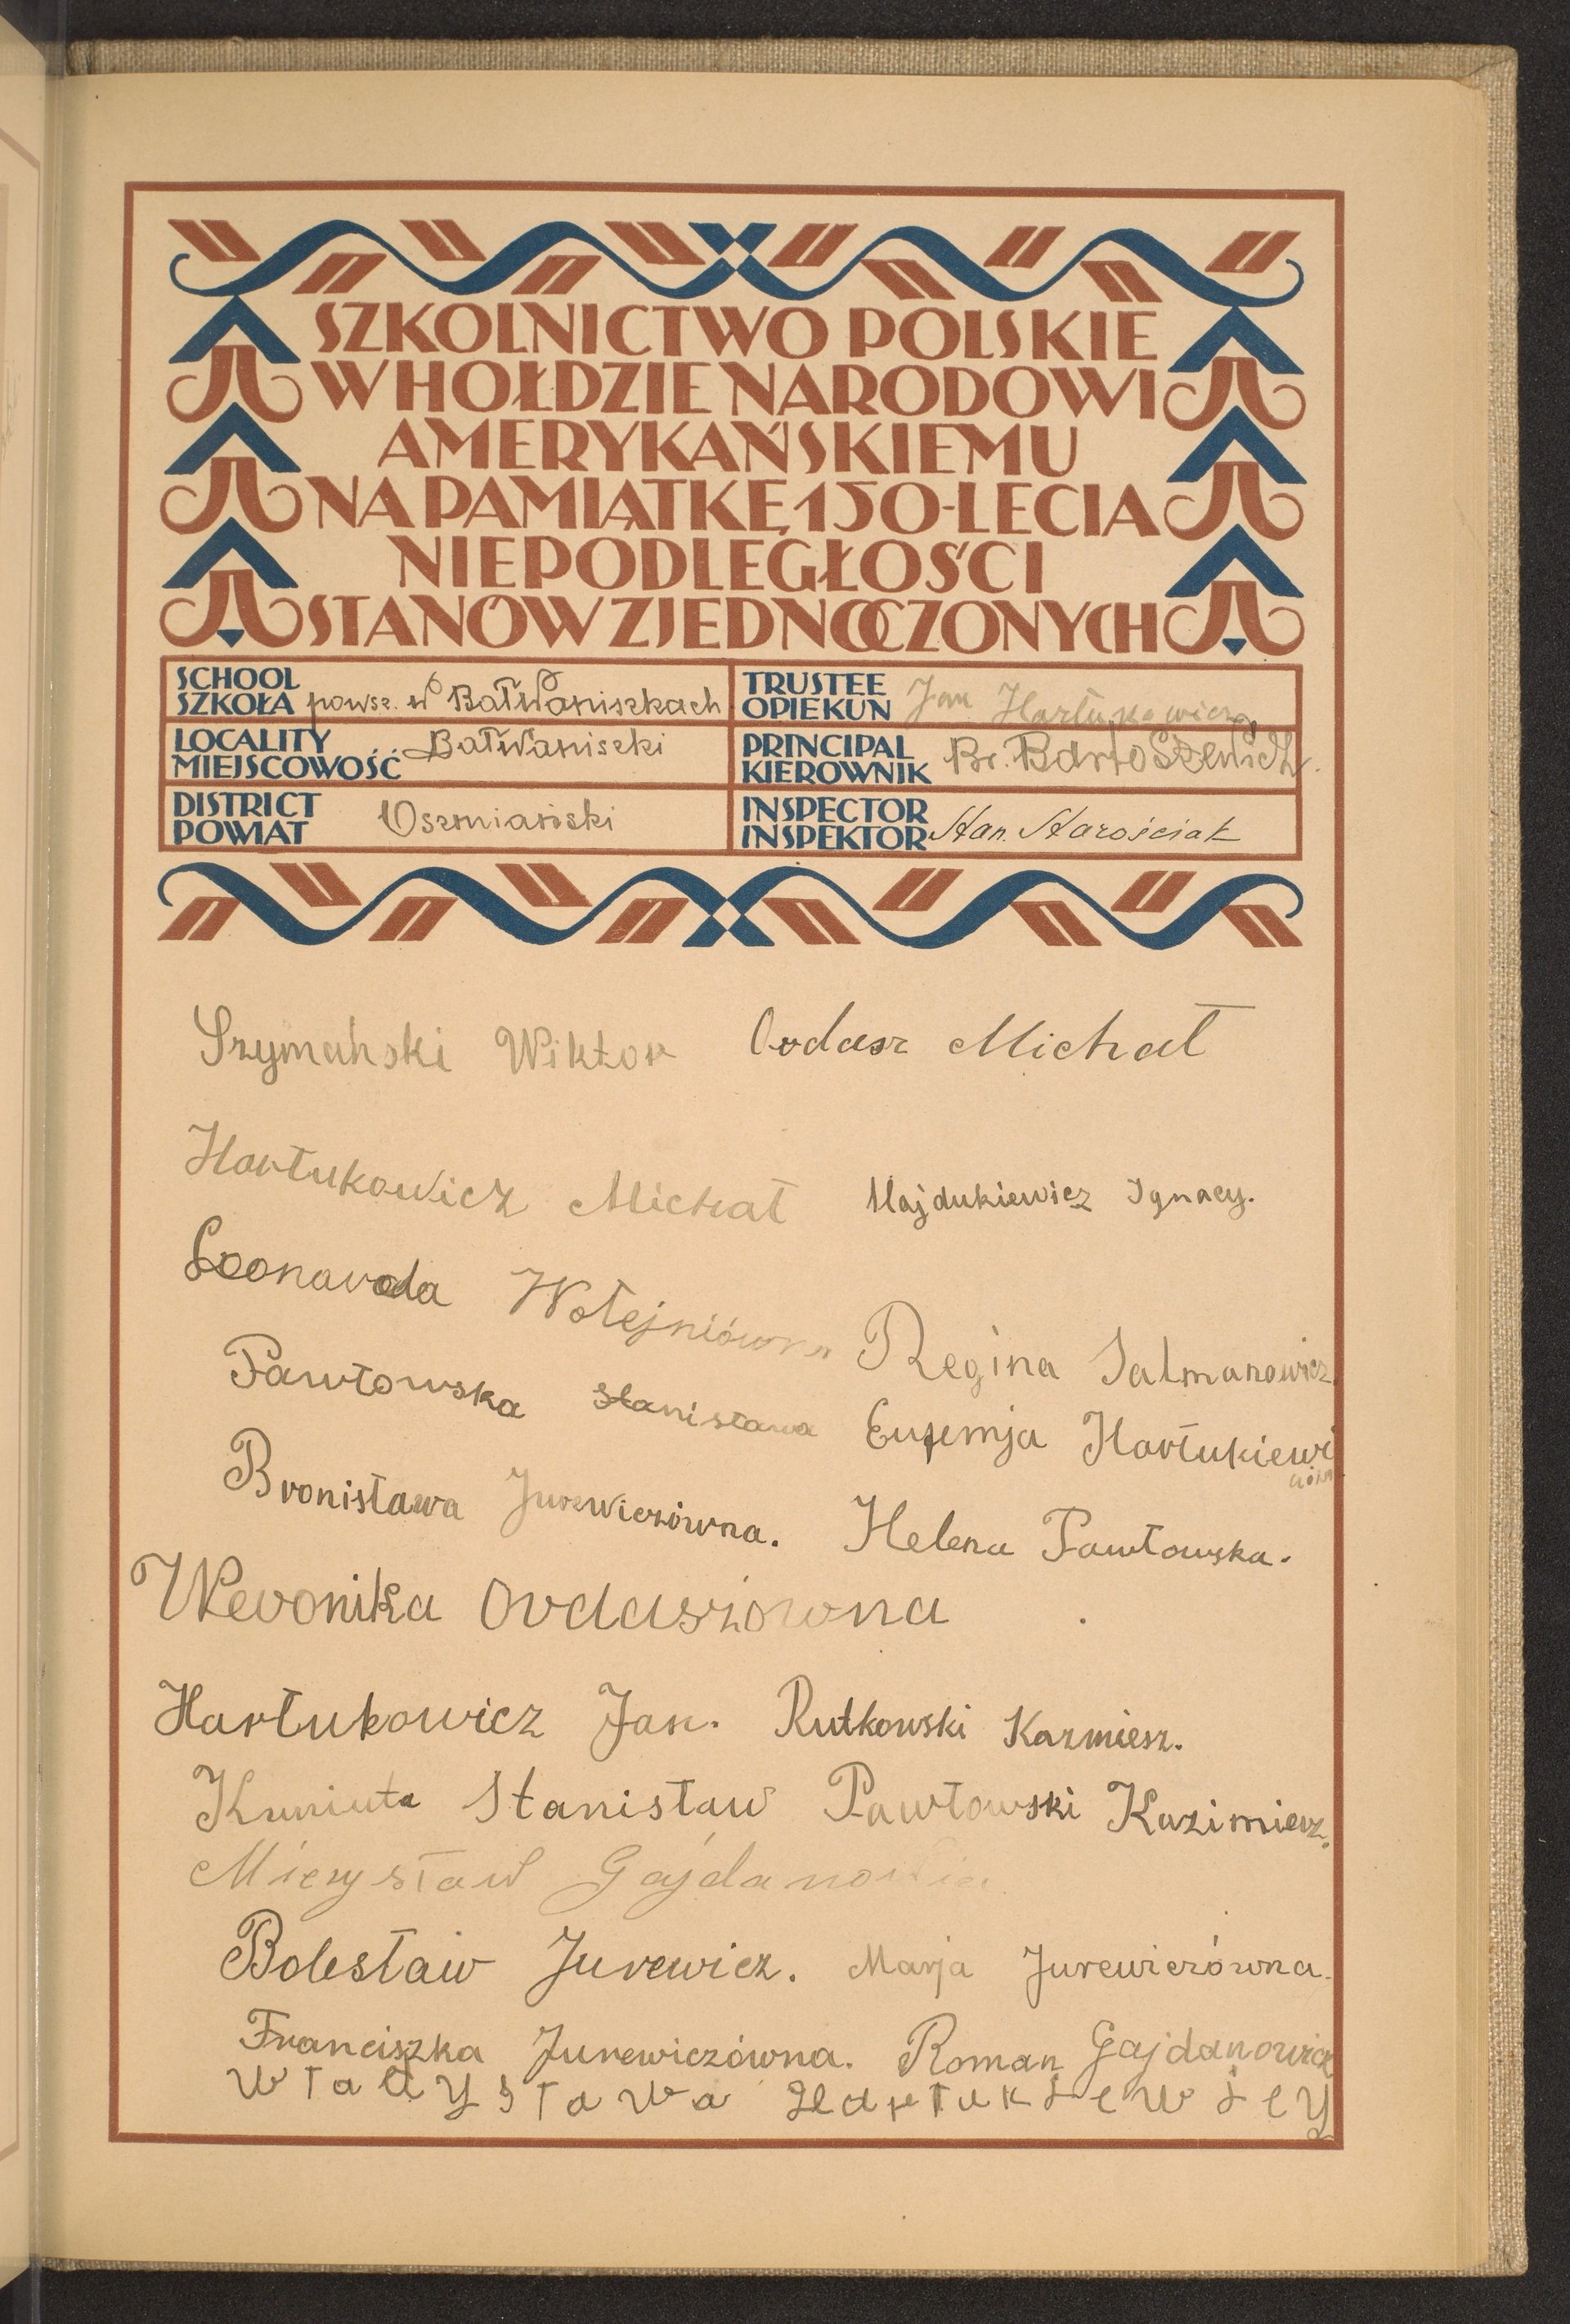 SZKOLNICTWO POLSKIE
W HOŁDZIE NARODOWI
AMERYKAŃSKIEMU
NA PAMIĄTKĘ 150-LECIA
NIEPODLEGŁOŚCI
STANÓW ZJEDNOCZONYCH
SCHOOL
SZKOŁA powsz. w Bałwaniszkach
TRUSTEE
OPIEKUN Jan Hartukowicz
LOCALITY
MIEJSCOWOŚĆ Bałwaniszki
PRINCIPAL
KIEROWNIK Br. Bartoszewicz.
DISTRICT
POWIAT Oszmiański
INSPECTOR
INSPEKTOR Stan. Starościak
Szymański Wiktor Ordasz Michał
Hartukowicz Michał Hajdukiewicz Ignacy.
Leonarda Wołejniówna Regina Salmanowicz
Pawłowska Stanisława Eufemja Hartukiewi
czówn
Bronisława Jurewiczówna. Helena Pawłowska.
Weronika Ordaszówna
Hartukowicz Jan. Rutkowski Kazmiesz.
Stanisław Pawłowski Kazimierz.
Mieczysław Gajdanowicz
Bolesław Jurewicz. Marja Jurewiczówna.
Franciszka Jurewiczówna. Roman Gajdanowicz
Władysława